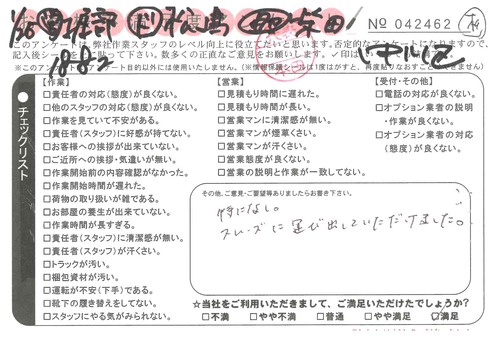 1/26 曽根部 松島 柴田
No 042462
18.8.2
このアンケートは、弊社作業スタッフのレベル向上に役立てたいと思います。否定的なアンケートになりますので、
記入後シールを貼って下さい。数多くの正直なご意見をお願いします。✓印は
※このアンケートは目的以外には使用いたしません。(※情報保護シールは1度はがすと、再度貼りなおすことができません)
チェックリスト
【作業】
□責任者の対応(態度)が良くない。
□他のスタッフの対応(態度)が良くない。
□作業を見ていて不安がある。
□責任者(スタッフ)に好感が持てない。
□お客様への挨拶が出来ていない。
□ご近所への挨拶・気遣いが無い。
□作業開始前の内容確認がなかった。
□作業開始時間が遅れた。
□荷物の取り扱いが雑である。
□お部屋の養生が出来ていない。
□作業時間が長すぎる。
□責任者(スタッフ)に清潔感が無い。
□責任者(スタッフ)が汗くさい。
□トラックが汚い。
□梱包資材が汚い。
□運転が不安(下手)である。
□靴下の履き替えをしてない。
□スタッフにやる気がみられない。
【営業】
□見積もり時間に遅れた。
□見積もり時間が長い。
□営業マンに清潔感が無い。
□営業マンが煙草くさい。
□営業マンが汗くさい。
□営業態度が良くない。
□営業の説明と作業が一致してない。
【受付・その他】
□電話の対応が良くない。
□オプション業者の説明
・作業が良くない。
□オプション業者の対応
(態度)が良くない。
その他、ご意見・ご要望等ありましたらお書き下さい。
特になし。
スムーズに運び出していただけました。
☆当社をご利用いただきまして、ご満足いただけたでしょうか?
□不満 □やや不満 □普通 □やや満足 ☑満足